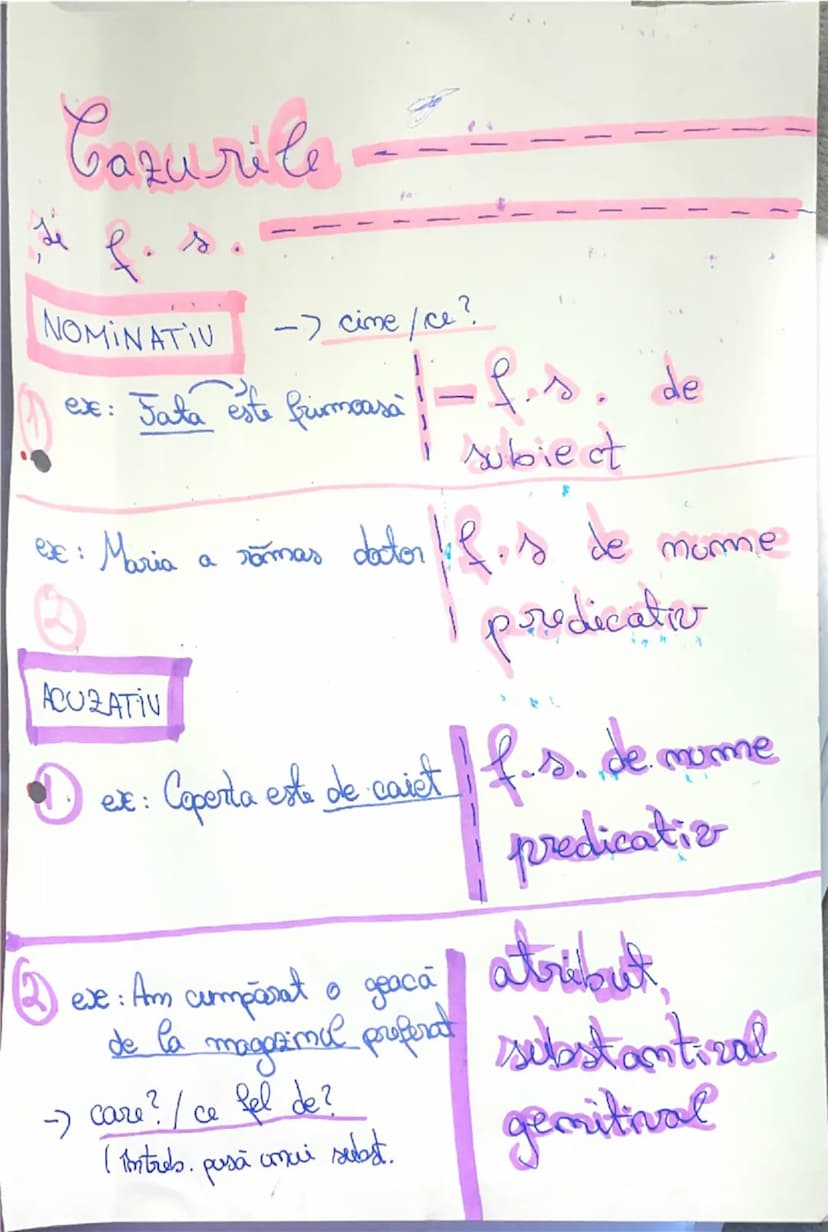 Cazurile
și f. s.
NOMINATIV -> cine/ce?
1 ex: Fata este frumoasă - f.s. de
subiect
ex: Maria a rămas doctor f.s de nume
2 predicativ
ACUZATIV
1. ex: Coperta este de caiet f.s. de nume
predicativ
2 ex: Am cumpărat o geacă
de la magazinul preferat
-> care? / ce fel de?
(întreb. pusă unui subst.
atribut,
substantival
genitival